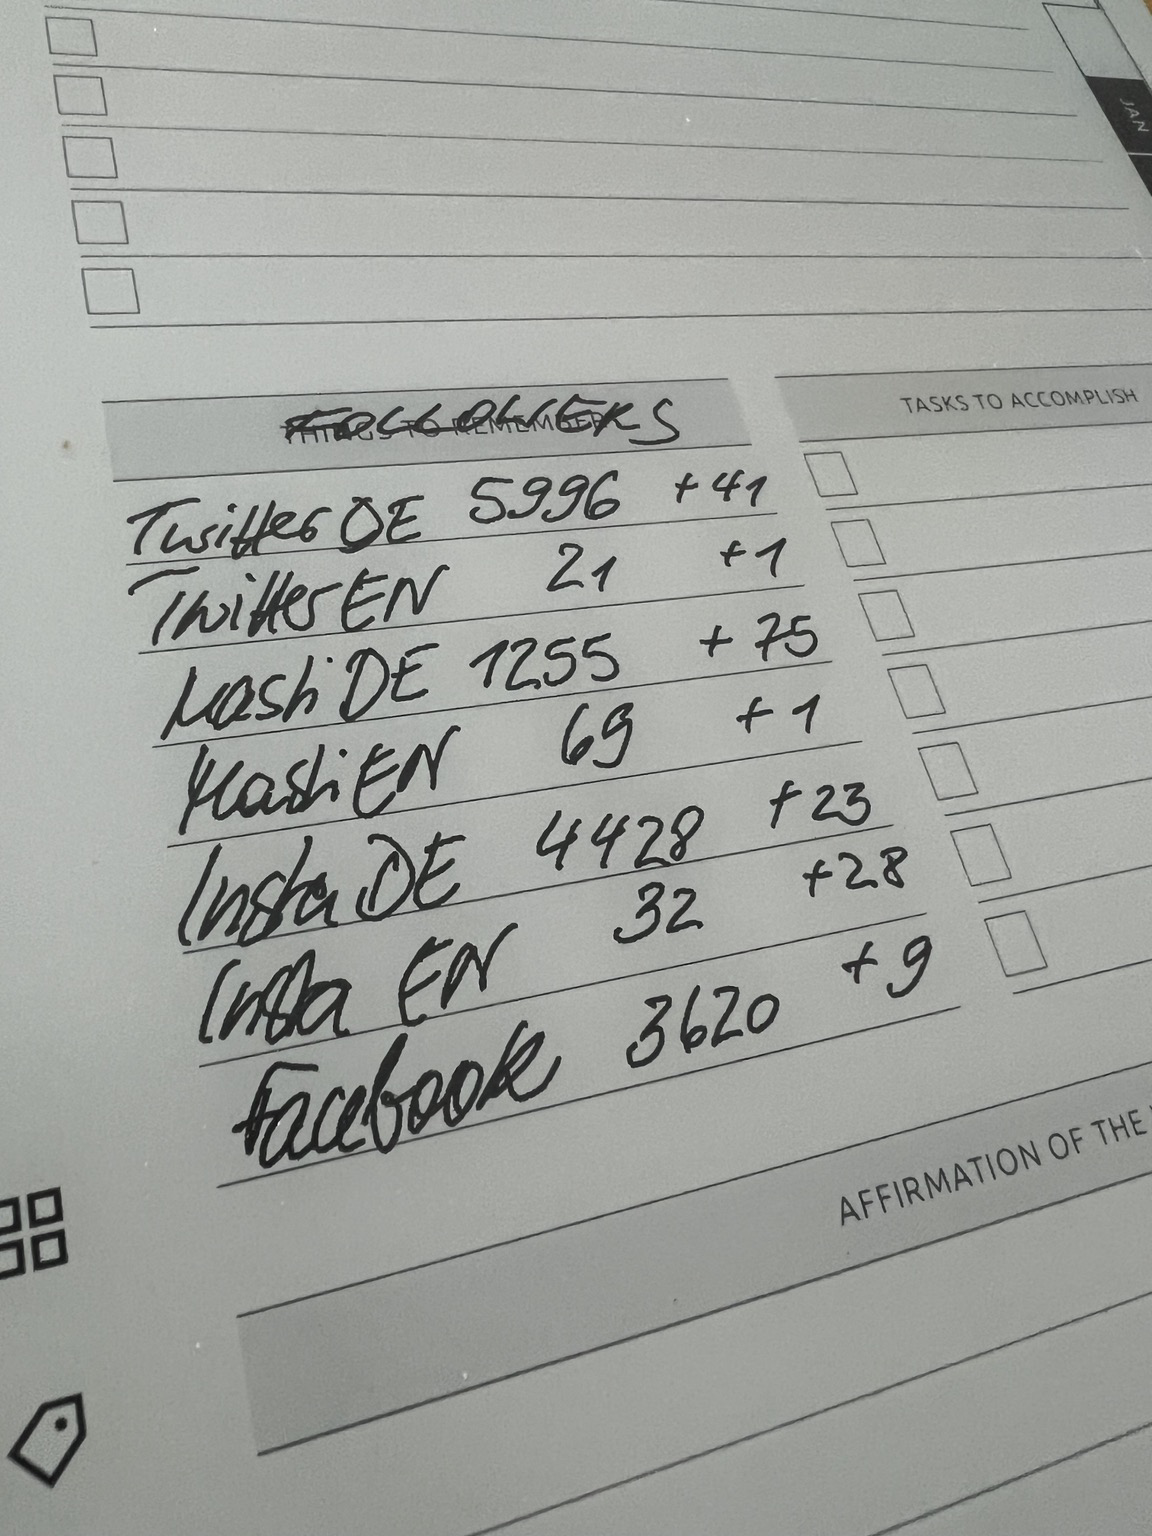 JAN
FOLLOWERS
THINGS TO REMEMBER
TASKS TO ACCOMPLISH
Twitter DE 5996 +41
Twitter EN 21 +1
Masti DE 1255 +75
Masti EN 69 +1
Insta DE 4428 +23
Insta EN 32 +28
Facebook 3620 +9
AFFIRMATION OF THE